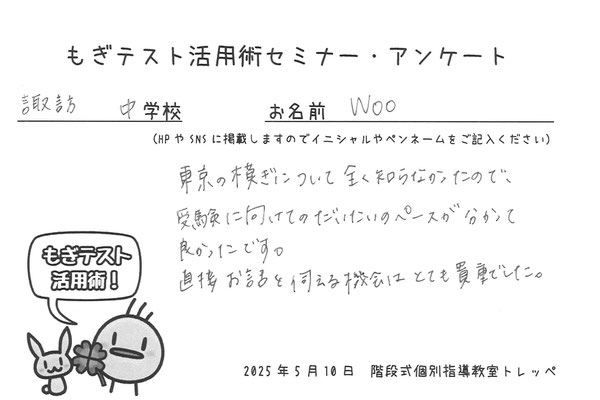 もぎテスト活用術セミナー・アンケート
諏訪 中学校 お名前 Woo
(HPやSNSに掲載しますのでイニシャルやペンネームをご記入ください)
東京の模ぎについて全く知らなかったので、
受験に向けてのだいたいのペースが分かって
良かったです。
直接お話を伺える機会はとても貴重でした。
もぎテスト
活用術！
2025年5月10日 階段式個別指導教室トレッペ